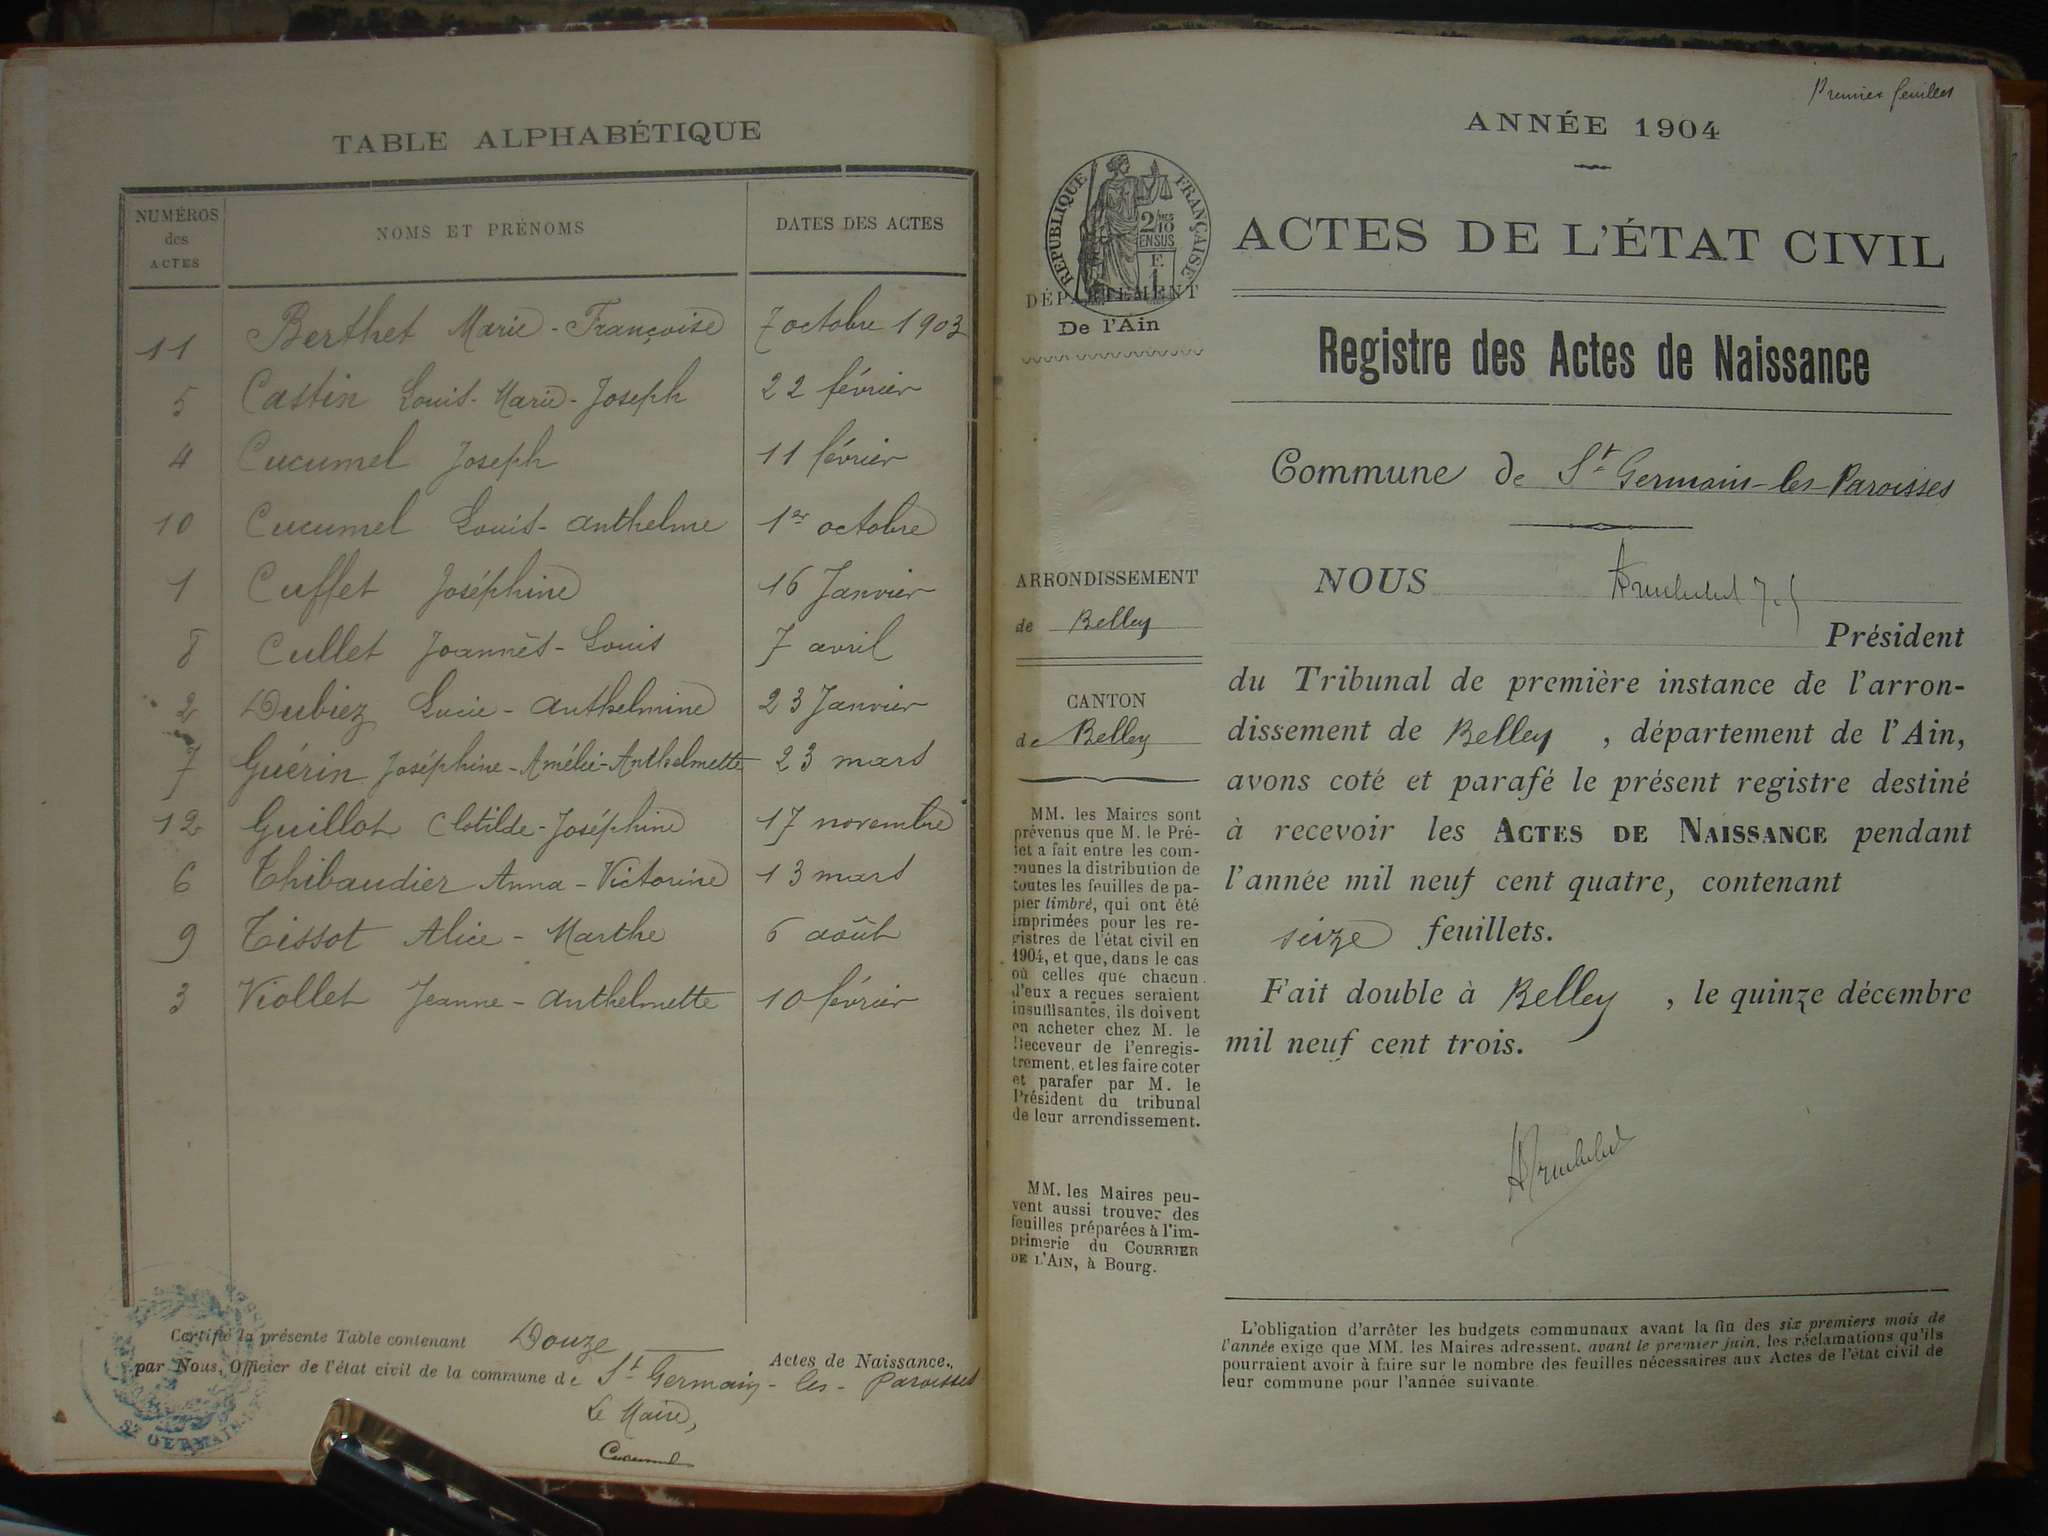 TABLE ALPHABÉTIQUE
NUMÉROS des ACTES NOMS ET PRÉNOMS DATES DES ACTES
11 Berthet Marie-Françoise 7 octobre 1903
5 Castin Louis-Marie-Joseph 22 février
4 Cucumel Joseph 11 février
10 Cucumel Louis-Anthelme 1er octobre
1 Cuffet Joséphine 16 Janvier
8 Cullet Joannès-Louis 7 avril
2 Dubiez Lucie-Anthelmine 23 Janvier
7 Guérin Joséphine-Amélie-Anthelmette 23 mars
12 Guillot Clotilde-Joséphine 17 novembre
6 Thibaudier Anna-Victorine 13 mars
9 Tissot Alice-Marthe 6 août
3 Viollet Jeanne-Anthelmette 10 février
Certifié la présente Table contenant Douze Actes de Naissance,
par Nous, Officier de l'état civil de la commune de St Germain-les-Paroisses
Le Maire,
Cucumel
ST GERMAIN
Premier feuillet
ANNÉE 1904
RÉPUBLIQUE FRANÇAISE
2/10
EN SUS
F.
1
DÉPARTEMENT
De l'Ain
ARRONDISSEMENT
de Belley
CANTON
de Belley
MM. les Maires sont
prévenus que M. le Pré-
fet a fait entre les com-
munes la distribution de
toutes les feuilles de pa-
pier timbré, qui ont été
imprimées pour les re-
gistres de l'état civil en
1904, et que, dans le cas
où celles que chacun
d'eux a reçues seraient
insuffisantes, ils doivent
en acheter chez M. le
Receveur de l'enregis-
trement, et les faire coter
et parafer par M. le
Président du tribunal
de leur arrondissement.
MM. les Maires peu-
vent aussi trouver des
feuilles préparées à l'im-
primerie du COURRIER
DE L'AIN, à Bourg.
ACTES DE L'ÉTAT CIVIL
Registre des Actes de Naissance
Commune de St Germain-les-Paroisses
NOUS
Président
du Tribunal de première instance de l'arron-
dissement de Belley, département de l'Ain,
avons coté et parafé le présent registre destiné
à recevoir les ACTES DE NAISSANCE pendant
l'année mil neuf cent quatre, contenant
seize feuillets.
Fait double à Belley, le quinze décembre
mil neuf cent trois.
L'obligation d'arrêter les budgets communaux avant la fin des six premiers mois de
l'année exige que MM. les Maires adressent, avant le premier juin, les réclamations qu'ils
pourraient avoir à faire sur le nombre des feuilles nécessaires aux Actes de l'état civil de
leur commune pour l'année suivante.